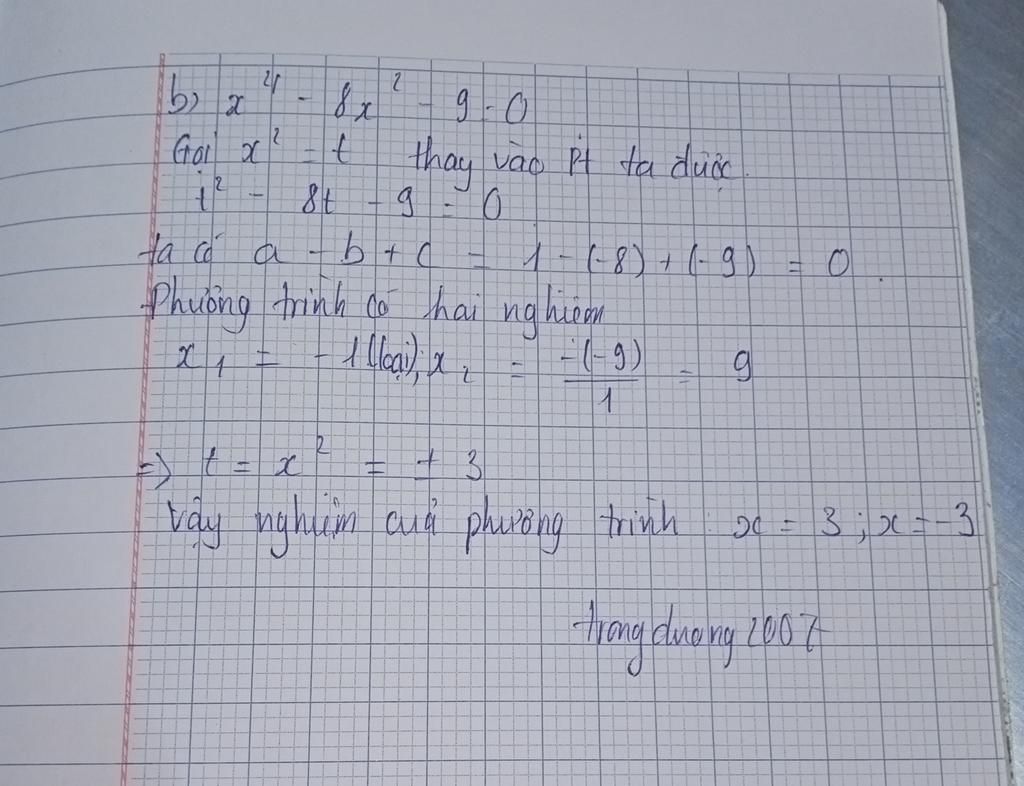 b) x⁴ - 8x² - 9 = 0
Gọi x² = t thay vào Pt ta được.
t² - 8t - 9 = 0
ta có a - b + c = 1 - (-8) + (-9) = 0.
Phương trình có hai nghiệm
x₁ = -1 (loại); x₂ = -(-9)/1 = 9
=> t = x² = ± 3
Vậy nghiệm của phương trình: x = 3; x = -3
trongduong2007